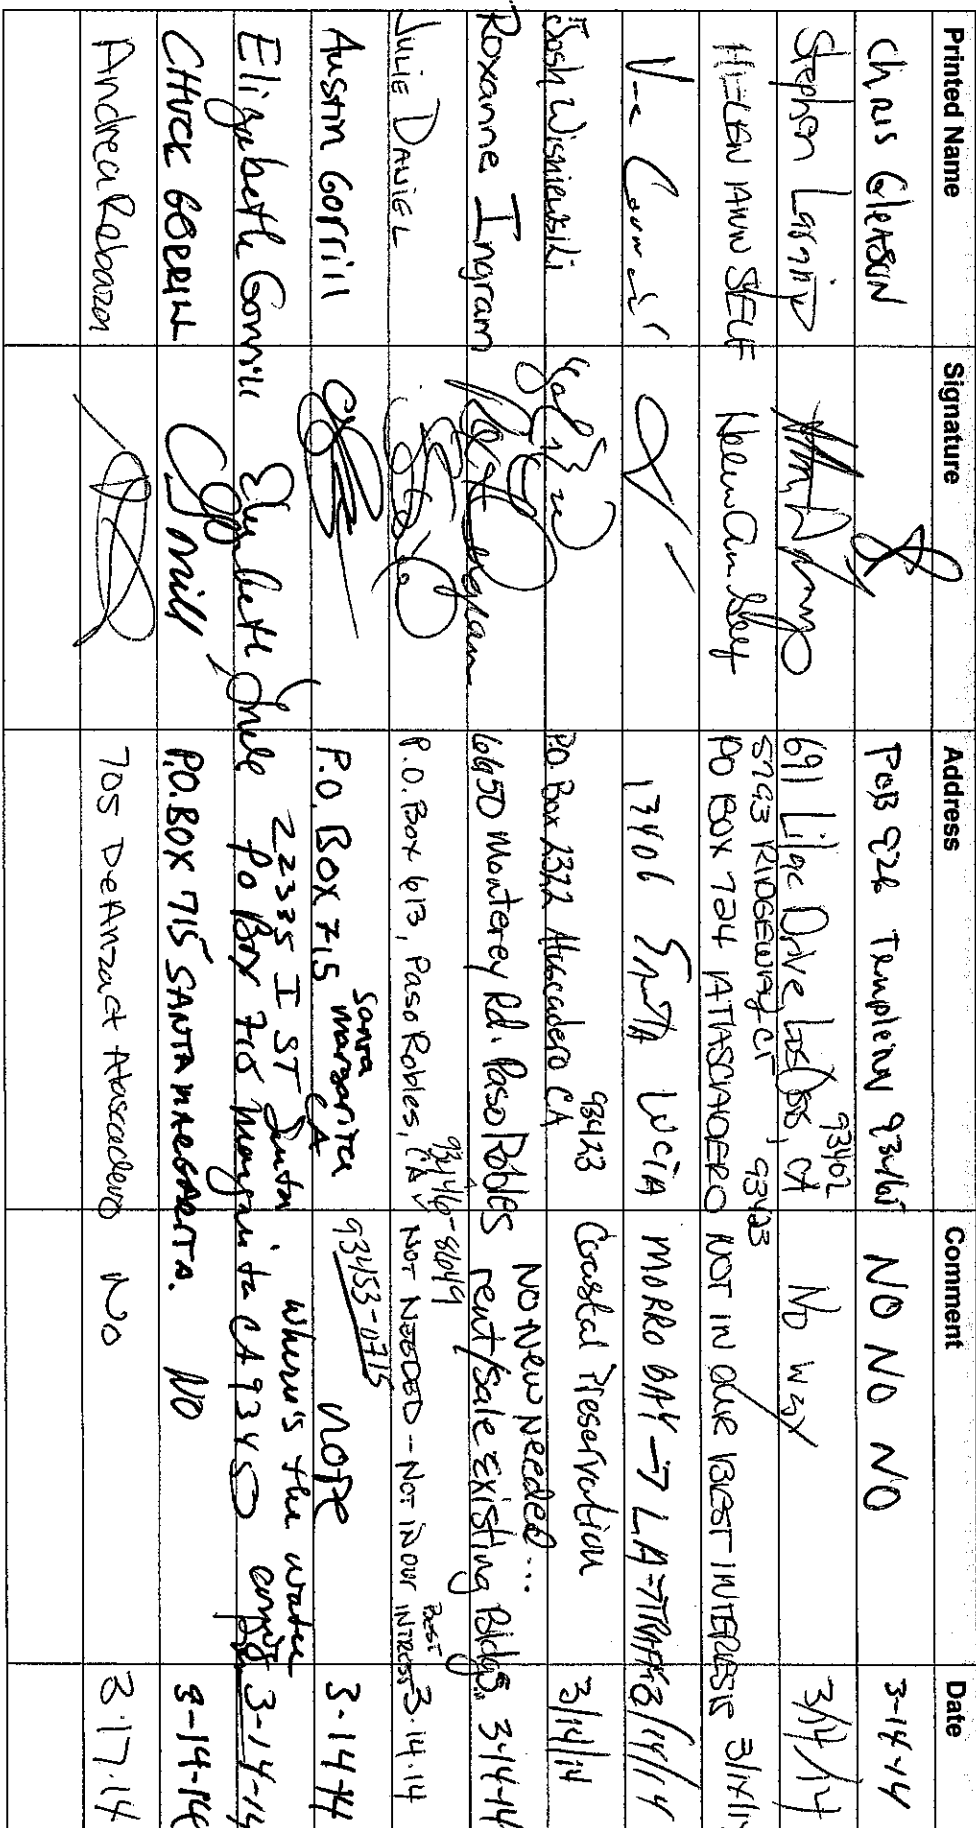 Printed Name Signature Address Comment Date
Chris Gleason POB 926 Templeton 93465 NO NO NO 3-14-14
Stephen 691 Lilac Drive Los Osos, CA 93402 No way 3/14/14
HELEN ANN SELF Helen Ann Self 5793 RIDGEWAY CT, 93423
PO BOX 724 ATASCADERO NOT IN OUR BEST INTERESTS
13406 SANTA LUCIA MORRO BAY → LA = TRAFFIC 3/14/14
Josh Wisniewski P.O. Box 2322 Atascadero CA 93423 Coastal Preservation 3/14/14
Roxanne Ingram 6650 Monterey Rd. Paso Robles NO New Needed...
rent/sale existing Bldgs. 3-14-14
JULIE DANIEL P.O. Box 613, Paso Robles, CA NOT NEEDED -- NOT IN OUR BEST INTREST 3.14.14
Austin Gorrill P.O. Box 715 Santa Margarita CA 93453-0715 nope 3-14-14
Elizabeth Gorrill 22335 I ST Santa
PO Box 715 Margarita CA where's the water 3-14-14
CHUCK GORRILL P.O. BOX 715 SANTA MARGARITA. NO 3-14-14
Andrea 705 DeAnza Ct Atascadero No 3.17.14